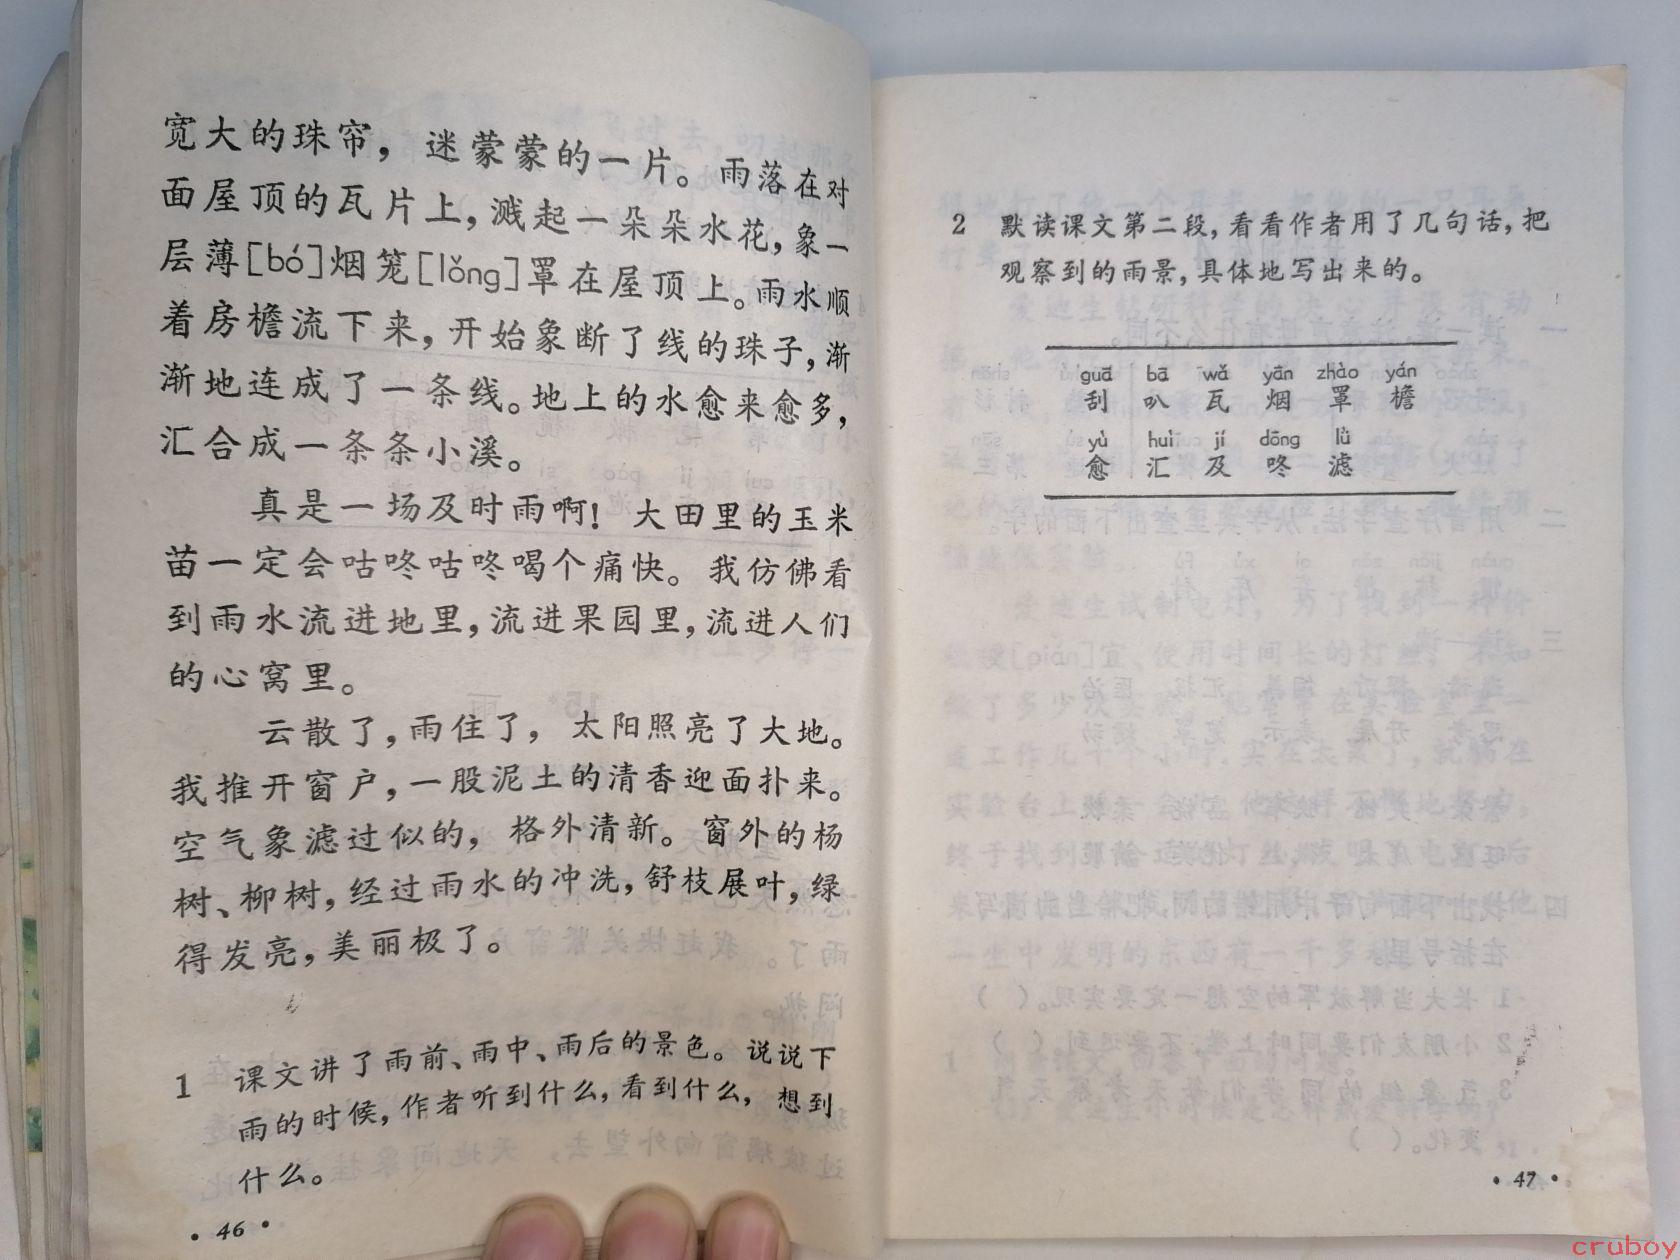 宽大的珠帘，迷蒙蒙的一片。雨落在对
面屋顶的瓦片上，溅起一朵朵水花，象一
层薄[bó]烟笼[lǒng]罩在屋顶上。雨水顺
着房檐流下来，开始象断了线的珠子，渐
渐地连成了一条线。地上的水愈来愈多，
汇合成一条条小溪。
真是一场及时雨啊！大田里的玉米
苗一定会咕咚咕咚喝个痛快。我仿佛看
到雨水流进地里，流进果园里，流进人们
的心窝里。
云散了，雨住了，太阳照亮了大地。
我推开窗户，一股泥土的清香迎面扑来。
空气象滤过似的，格外清新。窗外的杨
树、柳树，经过雨水的冲洗，舒枝展叶，绿
得发亮，美丽极了。
1 课文讲了雨前、雨中、雨后的景色。说说下
雨的时候，作者听到什么，看到什么，想到
什么。
·46·
2 默读课文第二段，看看作者用了几句话，把
观察到的雨景，具体地写出来的。
guā bā wǎ yān zhào yán
刮 叭 瓦 烟 罩 檐
yù huì jí dōng lǜ
愈 汇 及 咚 滤
·47·
cruboy